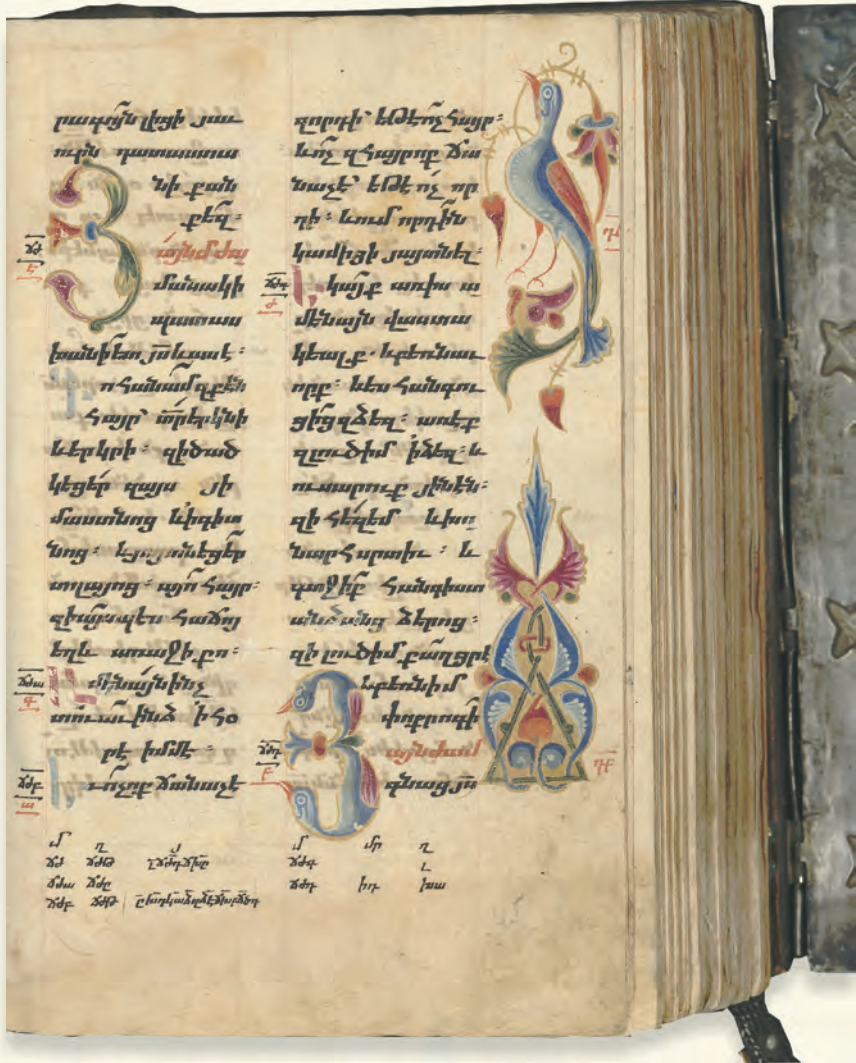 րագոյն լիցի յաւ
ուրն դատաստա
նի քան
քեզ ։
Յայնմ ժա
մանակի
պատաս
խանի ետ յս̅ և ասէ ։
Գոհանամ զքէն
հայր՝ տր̅ երկնի
և երկրի ։ զի ծած
կեցեր զայս յի
մաստնոց և ի գիտ
նոց ։ և յայտնեցեր
տղայոց ։ այո հայր ։
զի այսպես հաճոյ
եղև առաջի քո ։
Ամենայն ինչ
տուաւ ինձ ի հօ
րէ իմմէ ։
և ոչ ոք ճանաչէ
զորդի՝ եթէ ոչ հայր ։
և ոչ զհայր ոք ճա
նաչէ՝ եթէ ոչ որ
դի ։ և ում որդին
կամիցի յայտնել ։
Եկայք առ իս ա
մենայն վաստա
կեալք . և բեռնաւ
որք ։ և ես հանգու
ցից զձեզ ։ առէք
զլուծ իմ ի ձեզ ։ և
ուսարուք յինէն ։
զի հեզ եմ և խո
նարհ սրտիւ ։ և
գտջիք հանգիստ
անձանց ձերոց ։
զի լուծ իմ քաղցր է
և բեռն իմ
փոքրոգի
Յայն ժամ
գնաց յս̅
ՃԺ
Է
ՃԺԱ
Գ
ՃԺԲ
Ա
ՃԺԳ
Ժ
ՃԺԴ
Բ